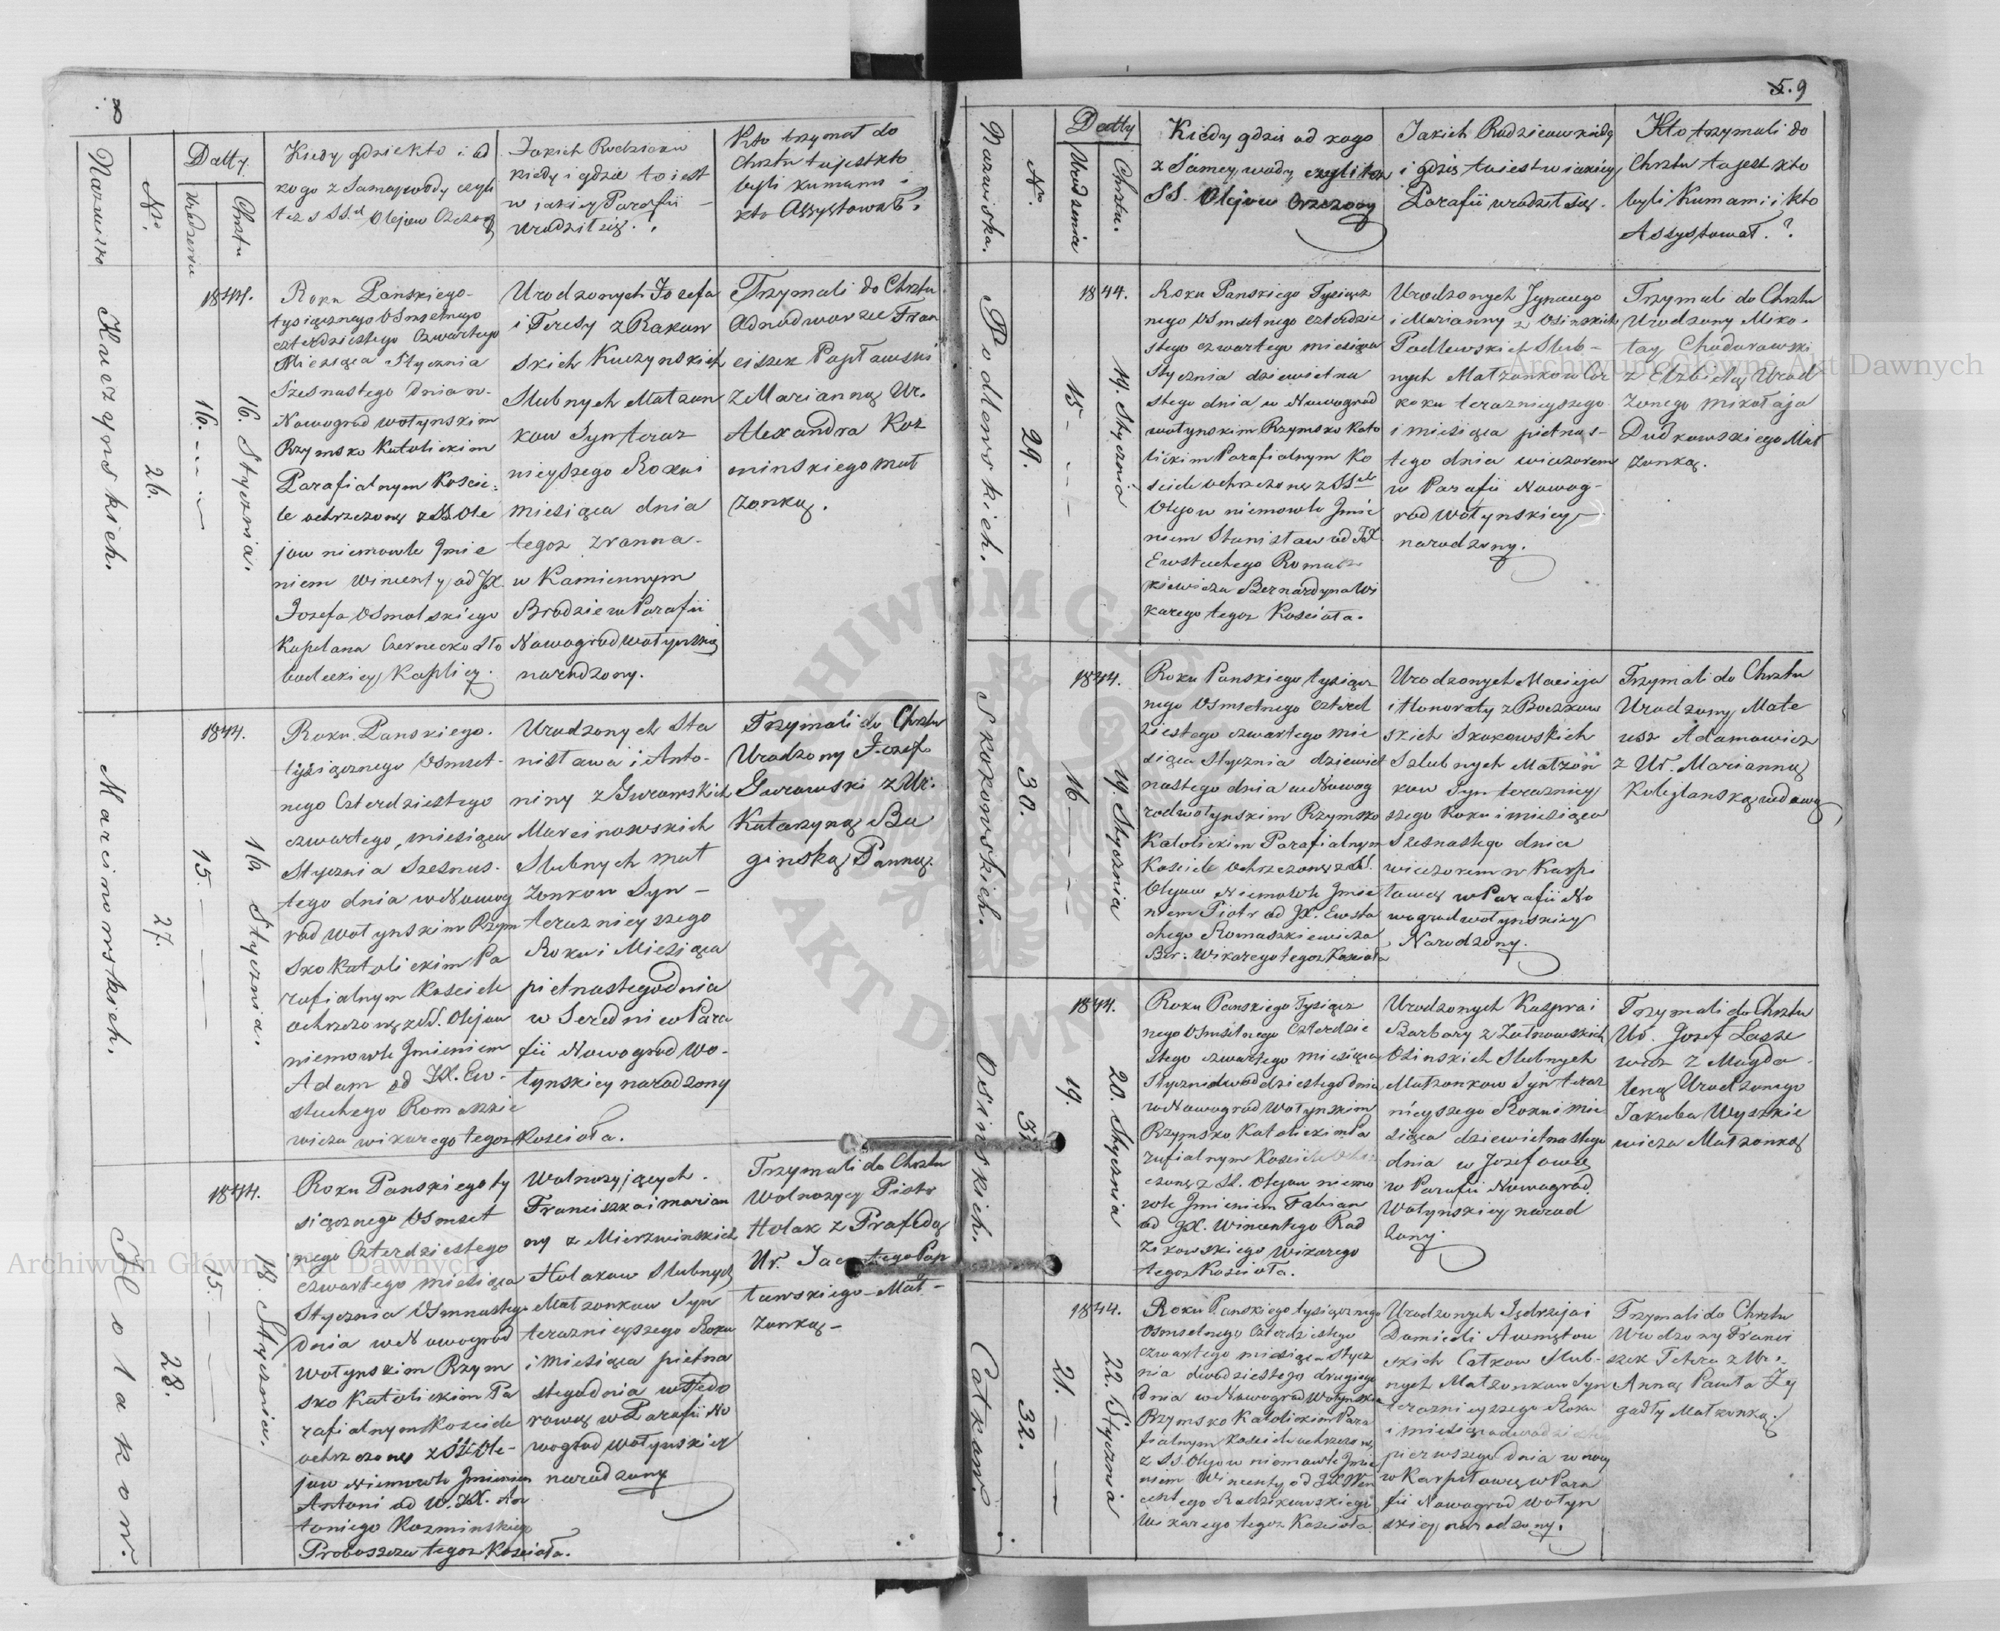 8
Nazwisko
No.
Datty
Urodzenia
Chrztu
Kiedy gdzie kto i od
kogo z Samej wody czyli
też z SS.ch Olejow Chrzczony
Jakich Rodzicow
kiedy i gdzie to iest
w iakiey Parafii
urodził się.
Kto trzymał do
Chrztu to jest kto
byli kumami i
kto Assystował.
Kuczynskich.
26.
1844.
16.
16. Stycznia.
Roku Panskiego
tysiącznego Osmsetnego
czterdziestego Czwartego
Miesiąca Stycznia
Szesnastego dnia w
Nowogrod wołynskim
Rzymsko Katolickim
Parafialnym Koscie
le ochrzczony z SS. Ole
jow niemowle Jmie
niem Wincenty od JX
Jozefa Osmolskiego
Kapelana Czernecko Sło
bodeckiey Kaplicy.
Urodzonych Jozefa
i Teresy z Rakow
skich Kuczynskich
Slubnych Małzon
kow Syn teraz
nieyszego Roku i
miesiąca dnia
tegoz zranna
w Kamiennym
Brodzie w Parafii
Nowogrod wołynskiey
narodzony.
Trzymali do Chrztu
Adnodworzec Fran
ciszek Popławski
z Marianną Ur.
Alexandra Koz
minskiego mał
zonką.
Marcinowskich.
27.
1844.
15.
16 Stycznia.
Roku Panskiego.
tysiącznego Osmset
nego Czterdziestego
czwartego, miesiąca
Stycznia Szesnas
tego dnia w Nowog
rod wołynskim Rzym
sko Katolickim Pa
rafialnym Kosciele
ochrzczony z SS. Olejow
niemowle Jmieniem
Adam od JX. Ew
stachego Romaszkie
wicza wikarego tegoz Kościoła.
Urodzonych Sta
nisława i Anto
niny z Gurawskich
Marcinowskich
Slubnych mał
zonkow Syn
teraznieyszego
Roku i Miesiąca
pietnastego dnia
w Seredni w Para
fii Nowogrod Wo
łynskiey narodzony
Trzymali do Chrztu
Urodzony Jozef
Gurawski z Ur.
Katarzyną Bu
ginską Panną.
Holakow.
28.
1844.
15.
18. Stycznia.
Roku Panskiego ty
siącznego Osmset
nego Czterdziestego
czwartego miesiąca
Stycznia Osmnastego
dnia w Nowogrod
Wołynskim Rzym
sko Katolickim Pa
rafialnym Kosciele
ochrzczony z SS Ole
jow Niemowle Jmieniem
Antoni od W. JX. An
toniego Kozminskiego
Proboszcza tegoz Kościoła.
Wolnozyjących
Franciszka i marian
ny z Mierzwinskich
Holakow Slubnych
Małzonkow Syn
teraznieyszego Roku
i Miesiąca pietna
stego dnia w Fedo
rowce w Parafii No
wogrod wołynskiey
narodzony
Trzymali do Chrztu
Wolnozyjcy Piotr
Holak z Praxedą
Ur. Jacentego Pop
ławskiego Mał
zonką
5. 9
Nazwiska.
No.
Datty
Urodzenia
Chrztu.
Kiedy gdzie od kogo
z Samey wody czyli też z
SS. Olejow Chrzczony
Jakich Rodzicow kiedy
i gdzie to iest w iakiey
Parafii urodził się.
Kto trzymali do
Chrztu to jest kto
byli Kumami i kto
Assystował.?
Podlewskich.
29.
1844.
15
19. Stycznia
Roku Panskiego Tysiącz
nego Osmsetnego Czterdzie
stego czwartego miesiąca
Stycznia dziewietna
stego dnia w Nowogrod
wołynskim Rzymsko Kato
lickim Parafialnym Ko
sciele ochrzczony z SS.ch
Olejow niemowle Jmie
niem Stanisław od JX
Ewstachego Romasz
kiewicza Bernardyna Wi
karego tegoz Kościoła.
Urodzonych Jgnacego
i Marianny z Osinskich
Podlewskich Slub
nych Małzonkow Cor
roku teraznieyszego
i miesiąca pietnas
tego dnia wieczorem
w Parafii Nowog
rod Wołynskiey
narodzony.
Trzymali do Chrztu
Urodzony Miko
łay Chodorowski
z Elzbietą Urod
zonego mikołaja
Dudkowskiego Mał
zonką.
Skokowskich.
30.
1844.
16
19. Stycznia
Roku Panskiego tysiącz
nego Osmsetnego Czterd
ziestego czwartego mie
siąca Stycznia dziewiet
nastego dnia w Nowog
rod wołynskim Rzymsko
Katolickim Parafialnym
Kosciele ochrzczony z SS.
Olejow Niemowle Jmie
niem Piotr od JX. Ewsta
chego Romaszkiewicza
Ber: Wikarego tegoz Kościoła
Urodzonych Macieja
i Honoraty z Boczkow
skich Skokowskich
Szlubnych Małzon
kow Syn terazniey
szego Roku i miesiąca
Szesnastego dnia
wieczorem w Karpi
łowce w Parafii No
wogrod wołynskiey
Narodzony.
Trzymali do Chrztu
Urodzony Mate
usz Adamowicz
z Ur. Marianną
Kuleglanską wdową
Osinskich.
31.
1844.
19.
20. Stycznia
Roku Panskiego Tysiącz
nego Osmsetnego Czterdzie
stego czwartego miesiąca
Stycznia dwódziestego dnia
w Nowogrod Wołynskim
Rzymsko Katolickim Pa
rafialnym Kosciele Ochrz
czony z SS. Olejow niemo
wle Jmieniem Fabian
od JX. Wincentego Rad
zikowskiego Wikarego
tegoz Kościoła.
Urodzonych Kaspra i
Barbary z Zułnowskich
Osinskich Slubnych
Małzonkow Syn teraz
nieyszego Roku i mie
siąca dziewietnastego
dnia w Jozefowce
w Parafii Nowogrod
Wołynskiey narod
zony.
Trzymali do Chrztu
Ur. Jozef Lasze
wicz z Magda
leną Urodzonego
Jakuba Wyszkie
wicza Małzonką
Całkow.
32.
1844.
21.
22. Stycznia
Roku Panskiego tysiącznego
Osmsetnego Czterdziestego
czwartego miesiąca Stycz
nia dwódziestego drugiego
dnia w Nowogrod Wołynskim
Rzymsko Katolickim Para
fialnym Kosciele ochrzczony
z SS. Olejow niemowle Jmie
niem Wincenty od JX Win
centego Radzikowskiego
Wikarego tegoz Kościoła
Urodzonych Jędrzeja i
Damiceli
Całkow Slub
nych Małzonkow Syn
teraznieyszego Roku
i miesiąca dwódziestego
pierwszego dnia w nocy
w Karpiłowce w Para
fii Nowogrod Wołyn
skiey narodzony.
Trzymali do Chrztu
Urodzony Franci
szek Tetera z Ur.
Anną Pawła Zy
gadły Małzonką.
Archiwum Główne Akt Dawnych
Archiwum Główne Akt Dawnych
ARCHIWUM GŁÓWNE
AKT DAWNYCH